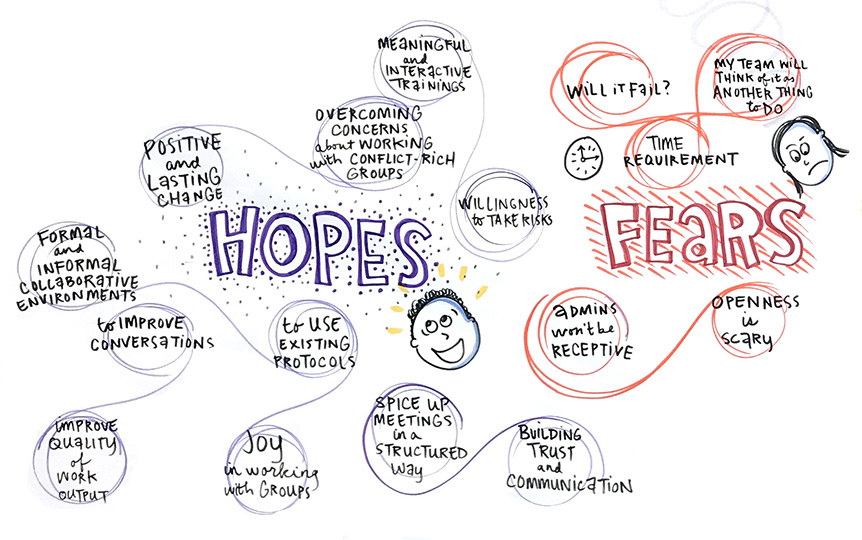 MEANINGFUL
and
INTERACTIVE
TRAININGS
OVERCOMING
CONCERNS
about WORKING
with CONFLICT-RICH
GROUPS
POSITIVE
and
LASTING
CHANGE
WILLINGNESS
to TAKE RISKS
HOPES
FORMAL
and
INFORMAL
COLLABORATIVE
ENVIRONMENTS
to IMPROVE
CONVERSATIONS
to USE
EXISTING
PROTOCOLS
IMPROVE
QUALITY
of
WORK
OUTPUT
JOY
in working
with GROUPS
SPICE UP
MEETINGS
in a
STRUCTURED
way
BUILDING
TRUST
and
COMMUNICATION
WILL IT FAIL?
MY TEAM WILL
THINK of it as
ANOTHER THING
to DO
TIME
REQUIREMENT
FEARS
ADMINS
won't be
RECEPTIVE
OPENNESS
is
SCARY